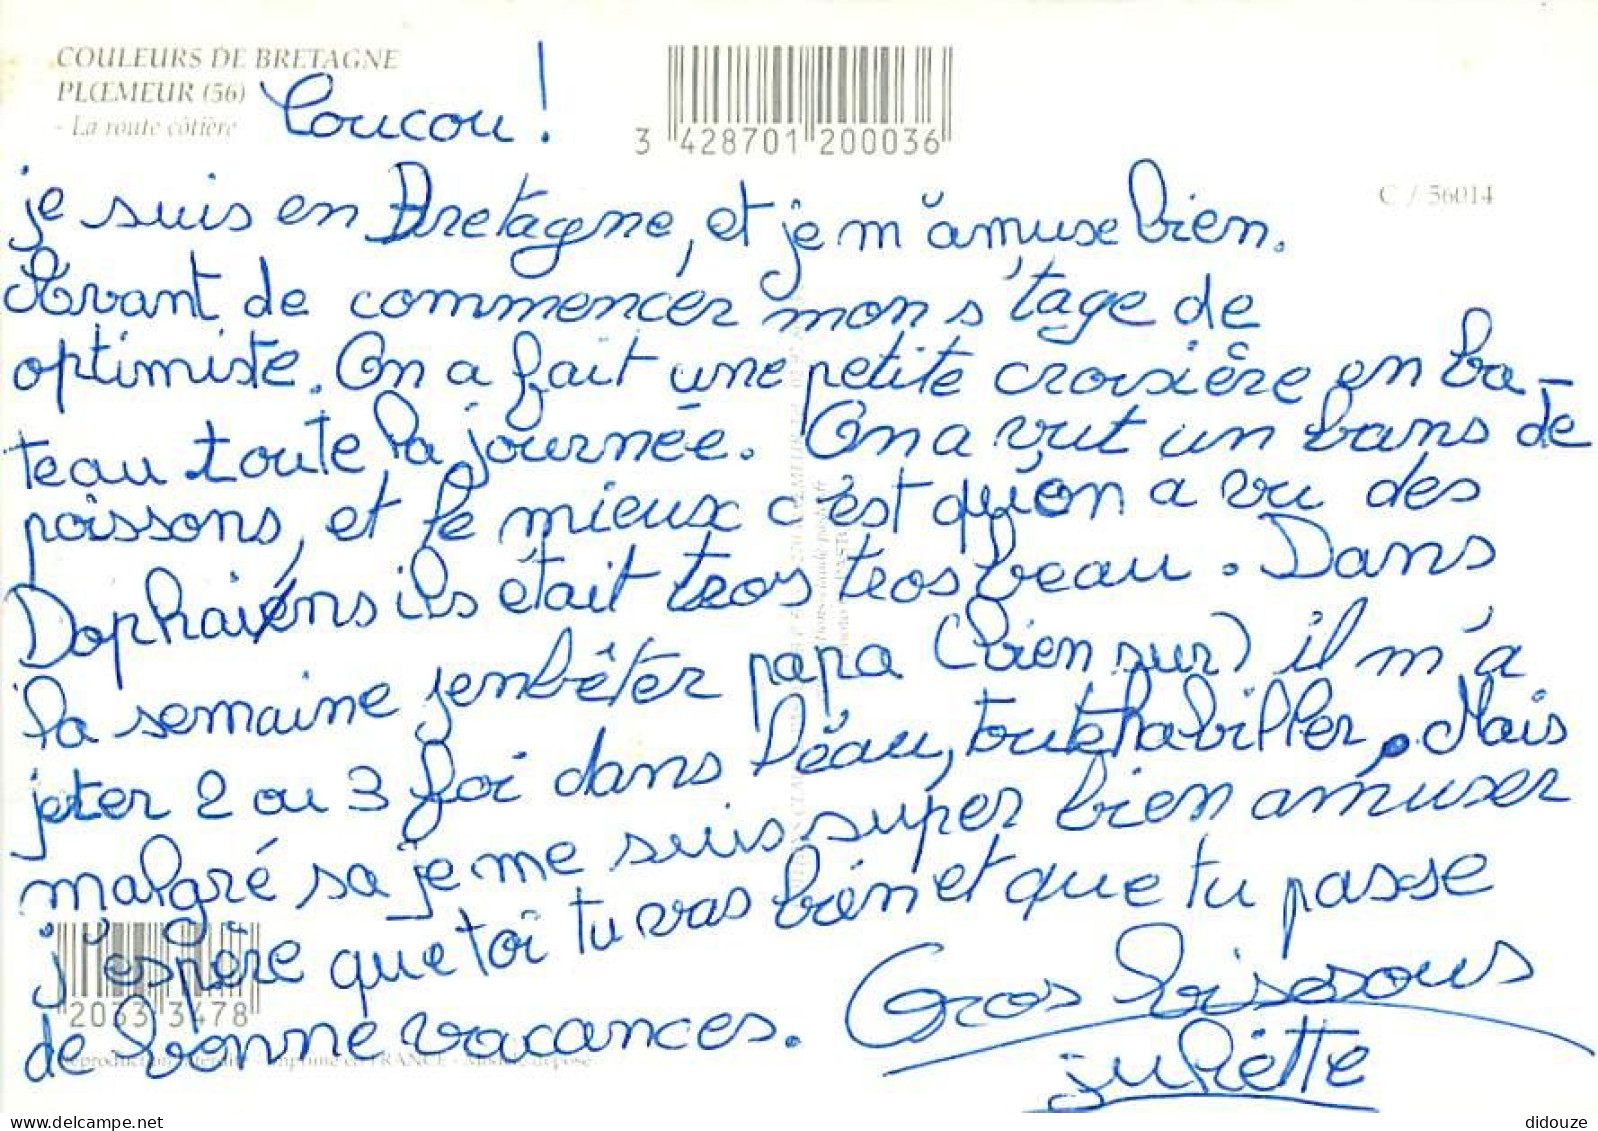 COULEURS DE BRETAGNE
PLŒMEUR (56)
- La route côtière
Coucou !
3 428701 200036
C / 56014
je suis en Bretagne, et je m'amuse bien.
Avant de commencer mon stage de
optimiste. On a fait une petite croisière en ba-
teau toute la journée. On a vut un bans de
poissons, et le mieux c'est qu'on a vu des
Dophaiéns ils était tros tros beau. Dans
la semaine j'embêter papa (bien sur) il m'a
jeter 2 ou 3 foi dans l'eau, toute habiller. Mais
malgré sa je me suis super bien amuser
j'espère que toi tu vas bien et que tu passe
de bonne vacances. Gros bisesous
juliette
2033 3478
Reproduction interdite - Imprimé en FRANCE - Modèle déposé
www.delcampe.net
didouze